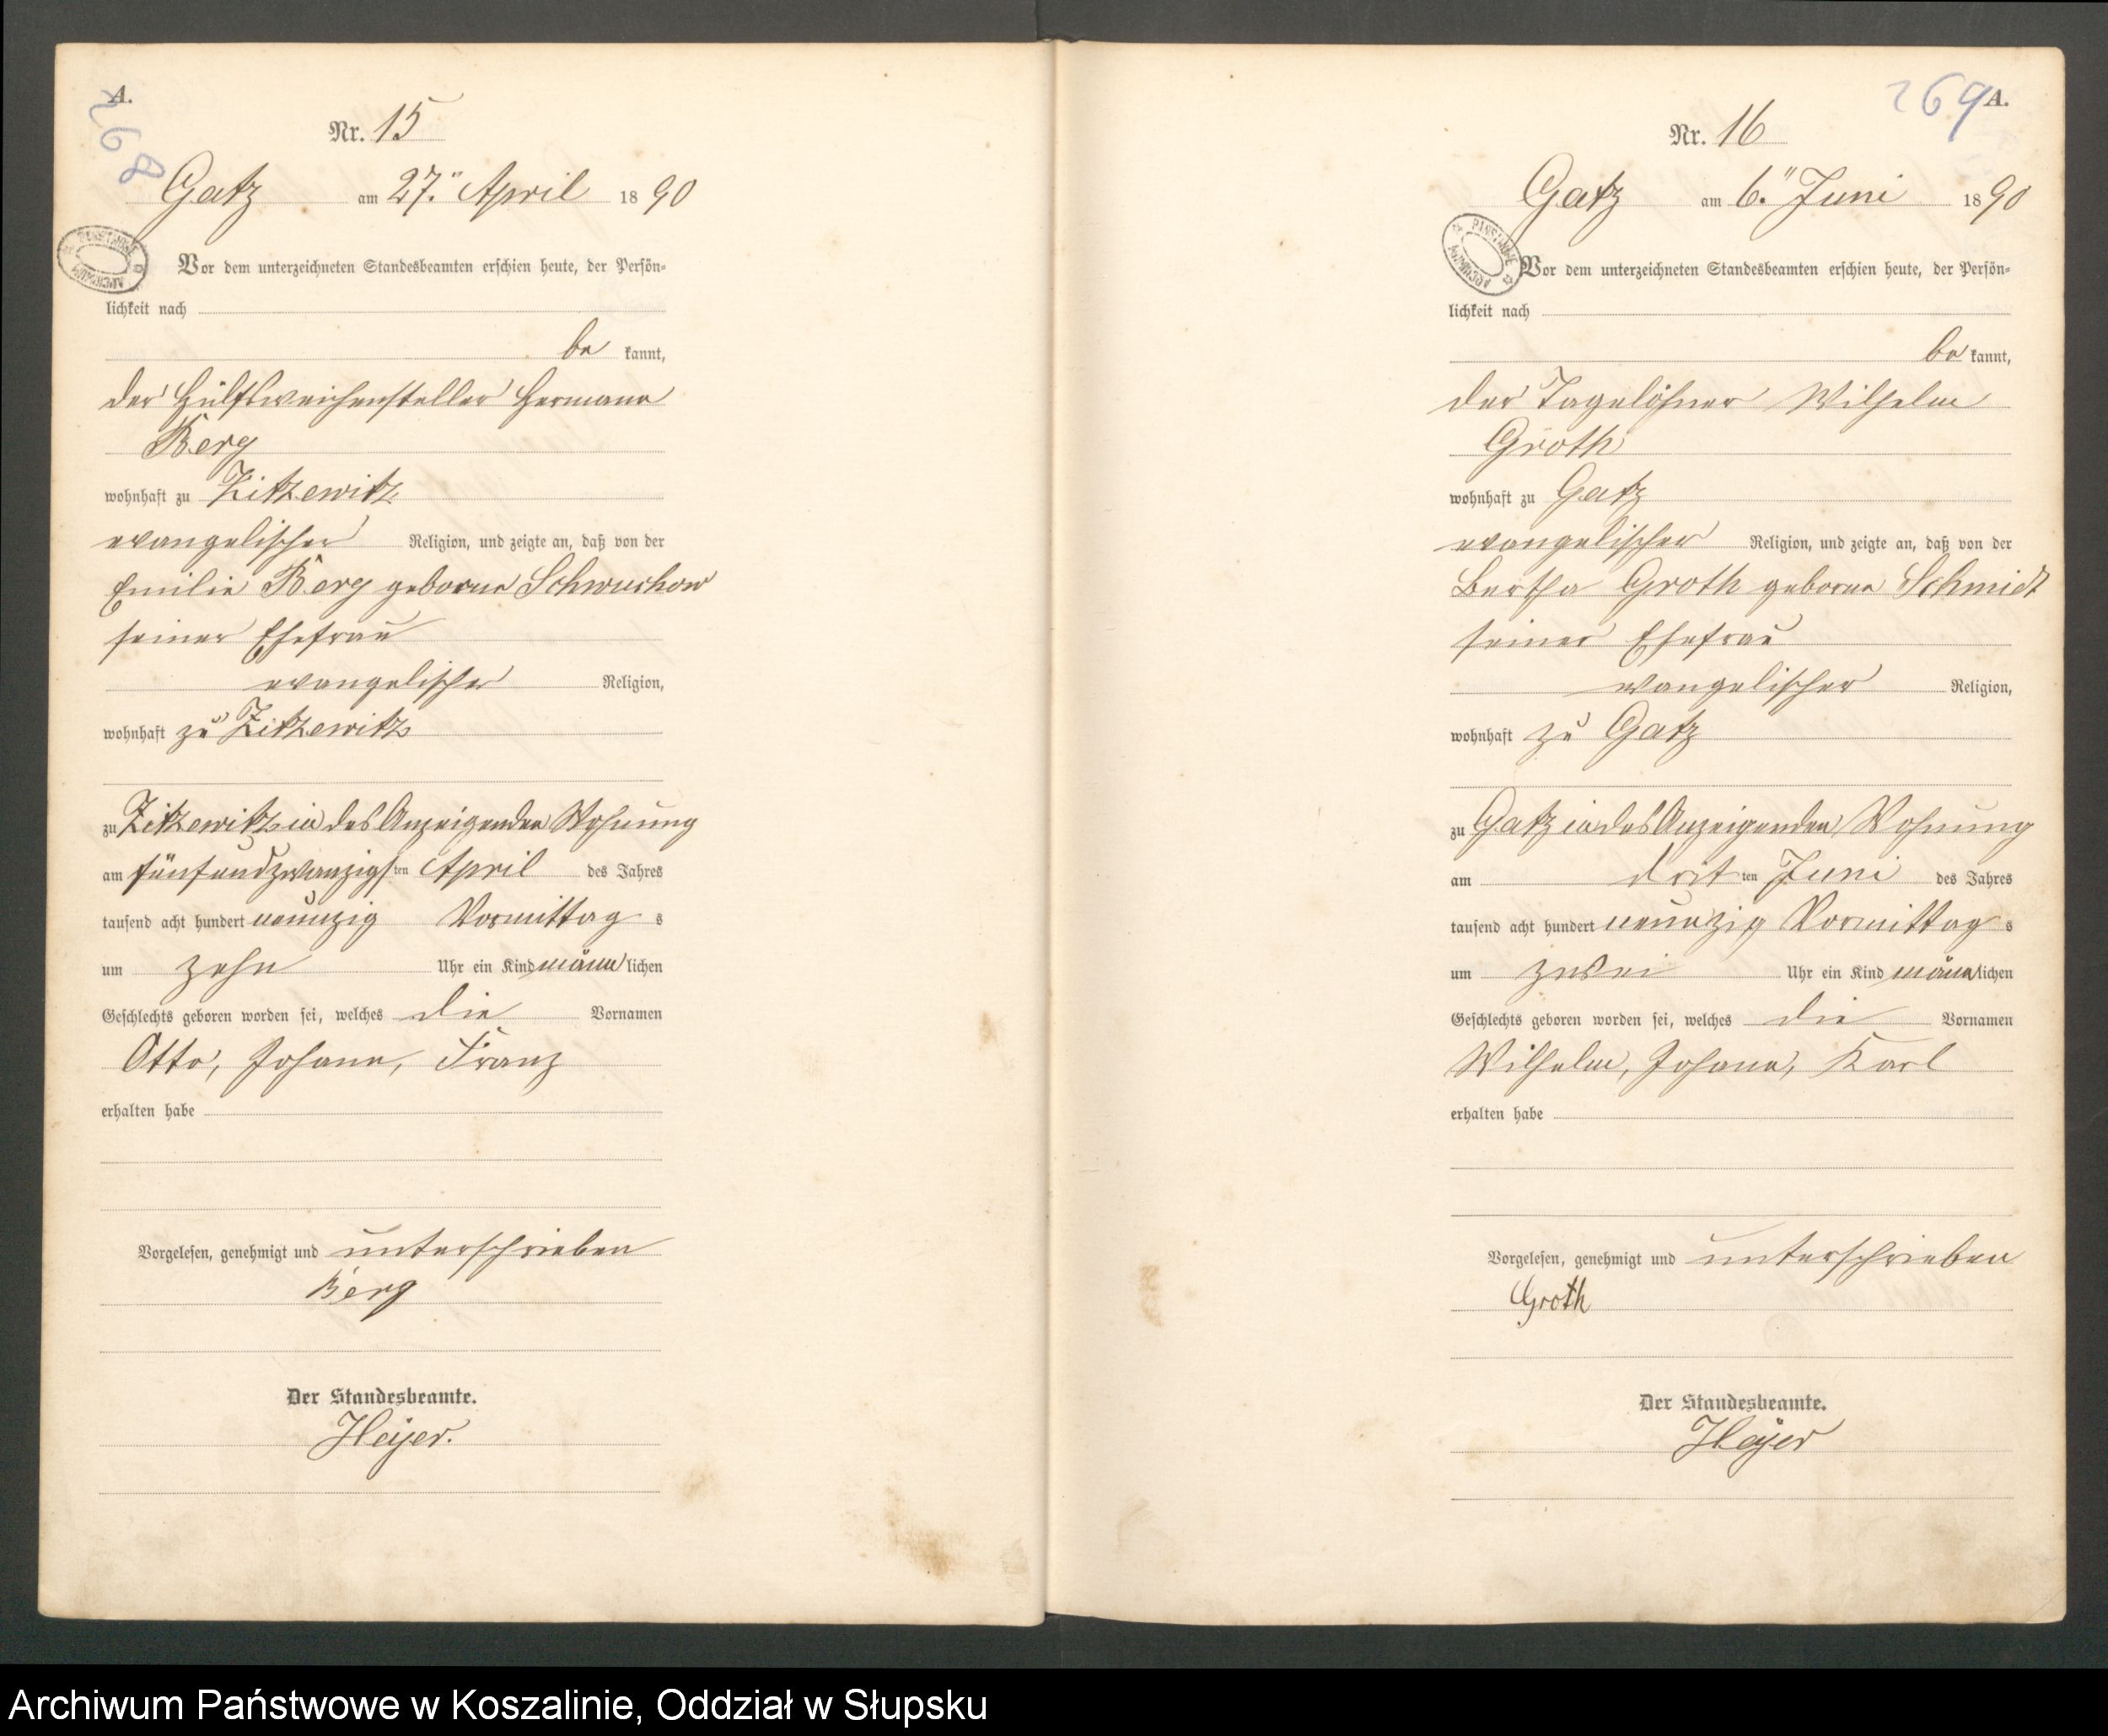 A.
268
Nr. 15
Gatz am 27. April 1890
PAŃSTWOWE
ARCHIWUM
Vor dem unterzeichneten Standesbeamten erschien heute, der Persön=
lichkeit nach
be kannt,
der Hülfsweichensteller Hermann
Berg
wohnhaft zu Zitzewitz
evangelischer Religion, und zeigte an, daß von der
Emilie Berg geborne Schwuchow
seiner Ehefrau
evangelischer Religion,
wohnhaft zu Zitzewitz
zu Zitzewitz in des Anzeigenden Wohnung
am fünfundzwanzigsten April des Jahres
tausend acht hundert neunzig Vormittags
um zehn Uhr ein Kind männlichen
Geschlechts geboren worden sei, welches die Vornamen
Otto, Johann, Franz
erhalten habe
Vorgelesen, genehmigt und unterschrieben
Berg
Der Standesbeamte.
Heÿer.
269 A.
Nr. 16
Gatz am 6. Juni 1890
PAŃSTWOWE
ARCHIWUM
Vor dem unterzeichneten Standesbeamten erschien heute, der Persön=
lichkeit nach
be kannt,
der Tagelöhner Wilhelm
Groth
wohnhaft zu Gatz
evangelischer Religion, und zeigte an, daß von der
Bertha Groth geborne Schmidt
seiner Ehefrau
evangelischer Religion,
wohnhaft zu Gatz
zu Gatz in des Anzeigenden Wohnung
am dritten Juni des Jahres
tausend acht hundert neunzig Vormittags
um zwei Uhr ein Kind männlichen
Geschlechts geboren worden sei, welches die Vornamen
Wilhelm, Johann, Karl
erhalten habe
Vorgelesen, genehmigt und unterschrieben
Groth
Der Standesbeamte.
Heÿer
Archiwum Państwowe w Koszalinie, Oddział w Słupsku